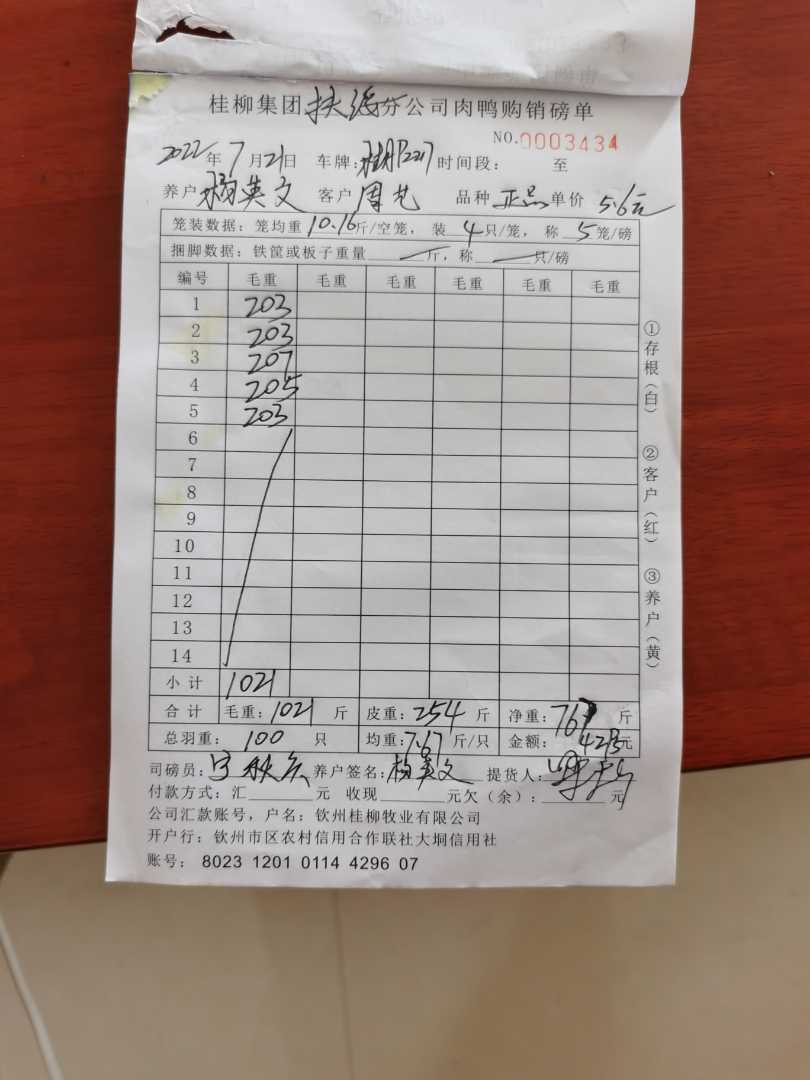 桂柳集团扶绥分公司肉鸭购销磅单
NO.0003434
2022年7月21日 车牌: 时间段: 至
养户杨英文 客户周艺 品种正品单价5.6元
笼装数据: 笼均重10.16斤/空笼, 装4只/笼, 称5笼/磅
捆脚数据: 铁筐或板子重量 — 斤, 称 — 只/磅
编号 毛重 毛重 毛重 毛重 毛重 毛重
1 203
2 203
3 207
4 205
5 203
6
7
8
9
10
11
12
13
14
小计 1021
合计 毛重:1021 斤 皮重:254 斤 净重:767 斤
总羽重: 100 只 均重:7.67斤/只 金额: 4295元
司磅员: 养户签名:杨英文 提货人:
付款方式: 汇 元 收现 元欠(余): 元
公司汇款账号, 户名: 钦州桂柳牧业有限公司
开户行: 钦州市区农村信用合作联社大垌信用社
账号: 8023 1201 0114 4296 07
①存根(白) ②客户(红) ③养户(黄)